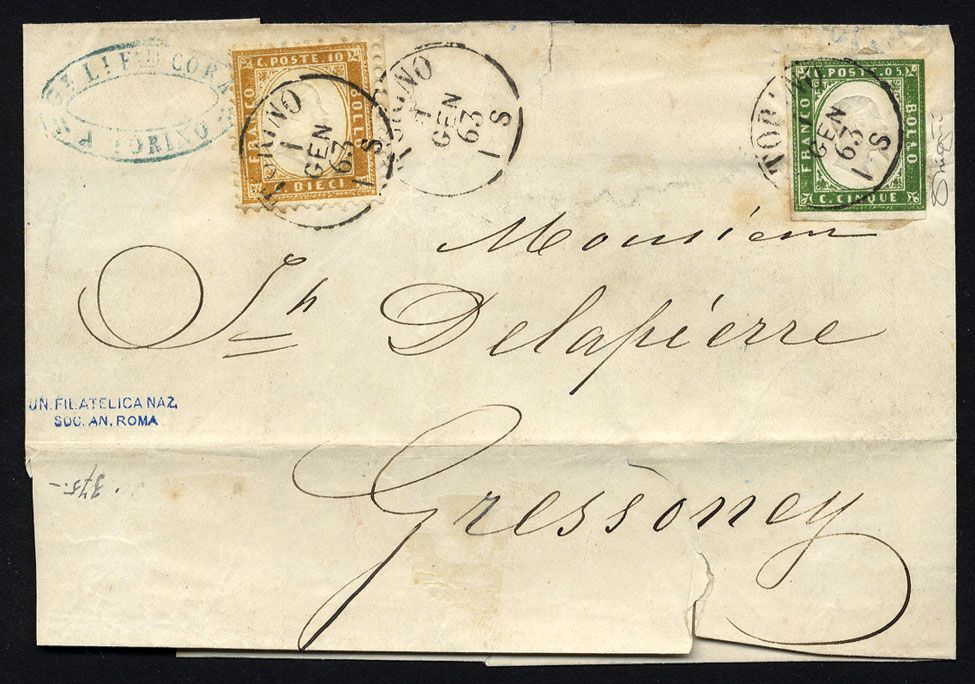 C. POSTE. 10
FRANCO
BOLLO
C. DIECI
TORINO
1
GEN
63
1 S
TORINO
1
GEN
63
1 S
C. POSTE. 05
FRANCO
BOLLO
C. CINQUE
GEN
63
1 S
CORA
TORINO
Monsieur
Jh Delapierre
UN. FILATELICA NAZ.
SOC. AN. ROMA
375.-
Gressoney